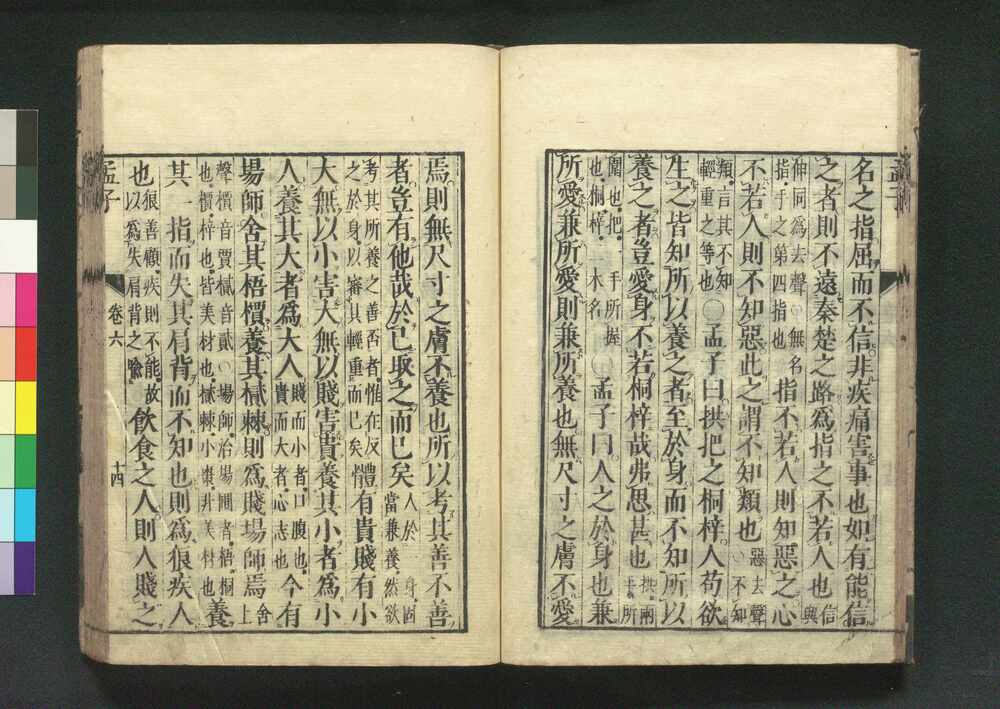 名之指屈而不信非疾痛害事也如有能信
之者則不遠秦楚之路爲指之不若人也信與
伸同爲去聲〇無名指手之第四指也指不若人則知惡之心
不若人則不知惡此之謂不知類也惡去聲〇不知
類言其不知輕重之等也〇孟子曰拱把之桐梓人苟欲
生之皆知所以養之者至於身而不知所以
養之者豈愛身不若桐梓哉弗思甚也拱兩手所
圍也把一手所握也桐梓二木名〇孟子曰人之於身也兼
所愛兼所愛則兼所養也無尺寸之膚不愛
焉則無尺寸之膚不養也所以考其善不善
者豈有他哉於己取之而已矣人於一身固當兼養然欲
考其所養之善否者惟在反之於身以審其輕重而已矣體有貴賤有小
大無以小害大無以賤害貴養其小者爲小
人養其大者爲大人賤而小者口腹也貴而大者心志也今有
場師舍其梧檟養其樲棘則爲賤場師焉舍上
聲檟音賈樲音貳〇場師治場圃者梧桐也檟梓也皆美材也樲棘小棗非美材也養
其一指而失其肩背而不知也則爲狼疾人
也狼善顧疾則不能故以爲失肩背之喻飲食之人則人賤之
孟子
卷六
十四